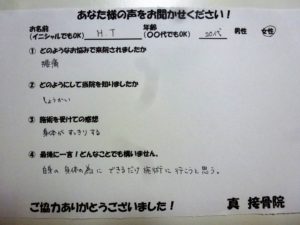 あなた様の声をお聞かせください！
お名前 (イニシャルでもOK) H.T 年齢 (〇〇代でもOK) 20代 男性 女性
① どのようなお悩みで来院されましたか
腰痛
② どのようにして当院を知りましたか
しょうかい
③ 施術を受けての感想
身体がすっきりする
④ 最後に一言！どんなことでも構いません。
自身の身体の為にできるだけ施術に行こうと思う。
ご協力ありがとうございました！ 真 接骨院